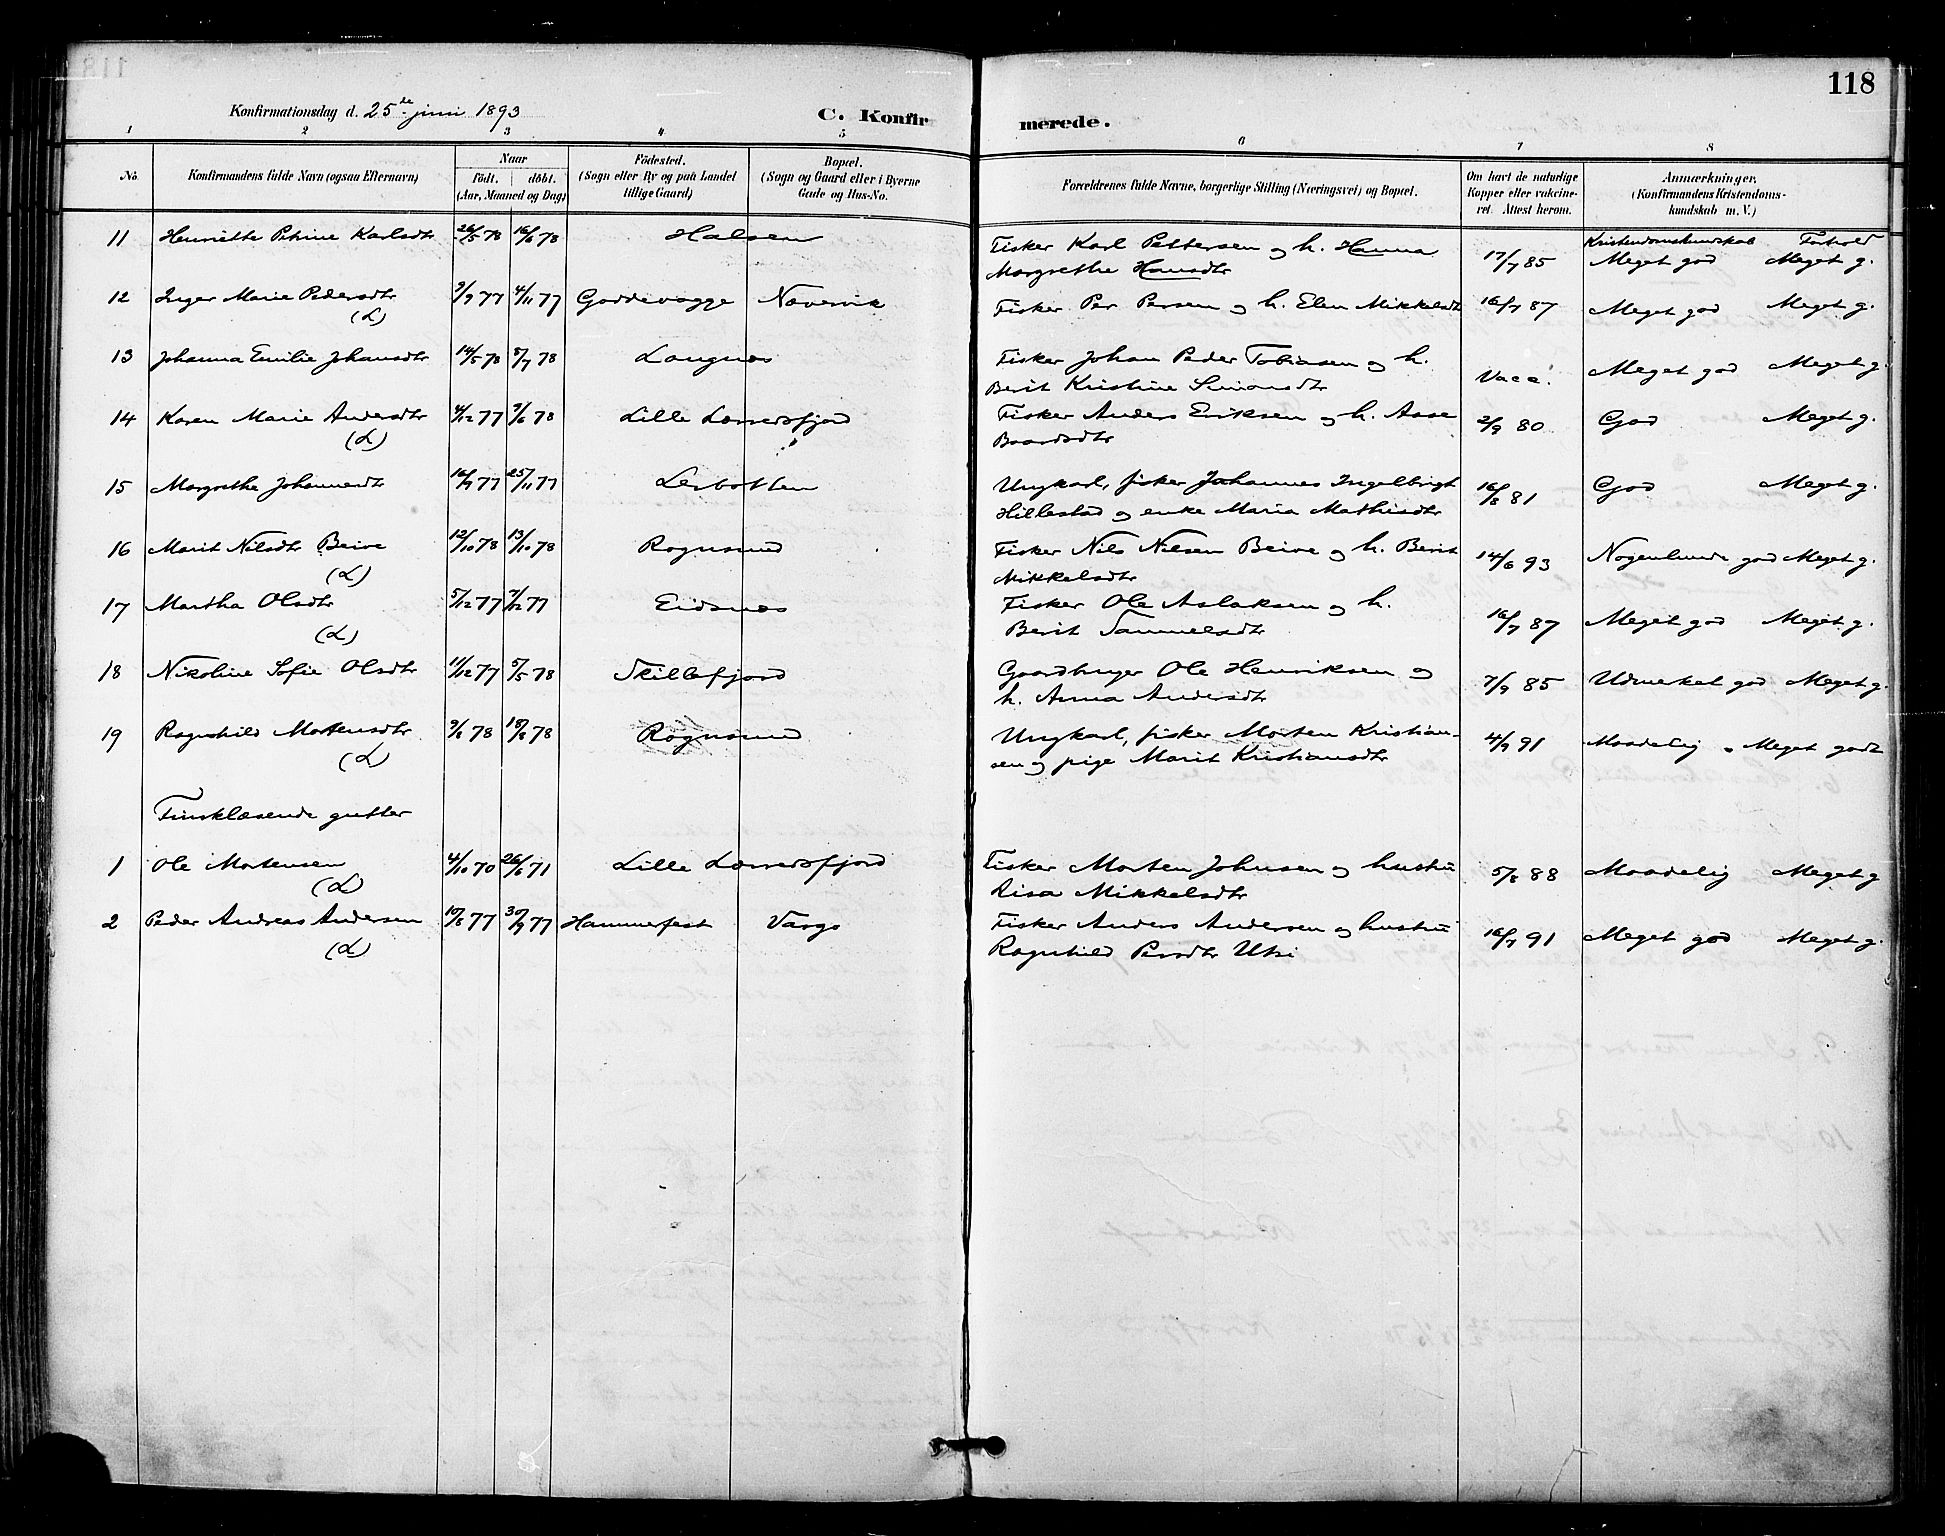 118
Konfirmationsdag d. 25de juni 1893
C. Konfirmerede.
1 2 3 4 5 6 7 8
No. Konfirmandens fulde Navn (ogsaa Efternavn) Naar födt. döbt. (Aar, Maaned og Dag) Födested. (Sogn eller By og paa Landet tillige Gaard) Bopæl. (Sogn og Gaard eller i Byerne Gade og Hus-No. Forældrenes fulde Navne, borgerlige Stilling (Næringsvei) og Bopæl. Om havt de naturlige Kopper eller vakcineret. Attest herom. Anmærkninger. (Konfirmandens Kristendomskundskab m. V.)
Kristendomskundskab Forhold
11 Henriette Petrine Karlsdtr 26/5 78 16/6 78 Halsen Fisker Karl Pettersen og h. Hanna 17/7 85 Meget god Meget g.
Margrethe Hansdtr
12 Inger Marie Pedersdtr 3/9 77 4/11 77 Goddevagge Nævervik Fisker Per Persen og h. Elen Mikkelsdt 16/7 87 Meget god Meget g.
(L)
13 Johanna Emilie Johansdtr 14/5 78 8/7 78 Langnes Fisker Johan Peder Tobiasen og h. Vacc. Meget god Meget g.
Berit Kristine Simonsdtr
14 Karen Marie Andersdtr 4/12 77 9/6 78 Lille Lerresfjord Fisker Anders Eriksen og h. Aase 2/9 80 God Meget g.
(L) Baardsdtr
15 Margrethe Johannesdtr 16/9 77 25/11 77 Lerbotten Ungkarl, fisker Johannes Ingelbrigt 16/8 81 God Meget g.
Hillestad og enke Maria Mathisdtr
16 Marit Nilsdtr Beive 12/10 78 13/10 78 Rognsund Fisker Nils Nilsen Beive og h. Berit 14/6 93 Nogenlunde god Meget g.
(L) Mikkelsdtr
17 Martha Olsdtr 5/12 77 7/12 77 Eidsnes Fisker Ole Aslaksen og h. 16/7 87 Meget god Meget g.
(L) Berit Sammelsdtr
18 Nikoline Sofie Olsdtr 11/12 77 5/5 78 Skillefjord Gaardbruger Ole Henriksen og 7/9 85 Udmerket god Meget g.
h. Anna Andersdtr
19 Ragnhild Mortensdtr 9/6 78 18/8 78 Rognsund Ungkarl, fisker Morten Kristian- 4/9 91 Maadelig Meget godt
(L) sen og pige Marit Kristiansdtr
Finsklæsende gutter
1 Ole Mortensen 4/10 70 26/6 71 Lille Lerresfjord Fisker Morten Johnsen og hustru 5/8 88 Maadelig Meget g
(L) Risa Mikkelsdtr
2 Peder Andreas Andersen 10/8 77 30/9 77 Hammerfest Vargs Fisker Anders Andersen og hustru 16/7 91 Meget god Meget g.
(L) Ragnhild Persdtr Utsi